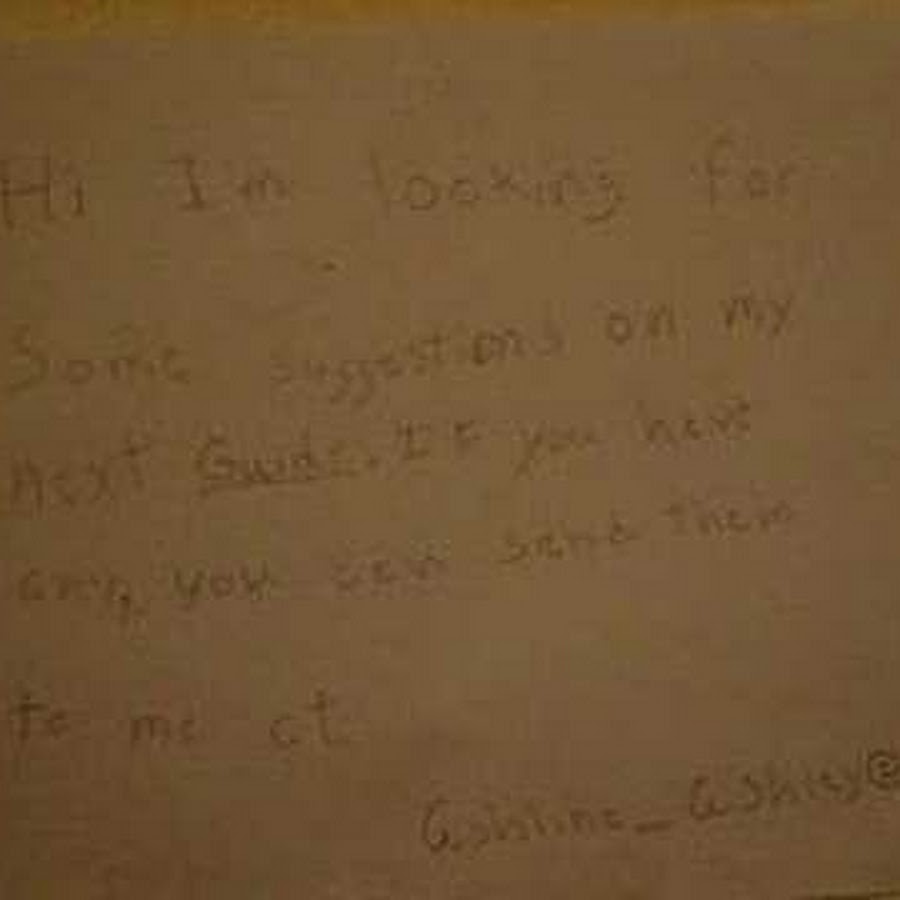 Hi I'm looking for
Some suggestions on my
next Guide. If you have
any, you can send them
to me at